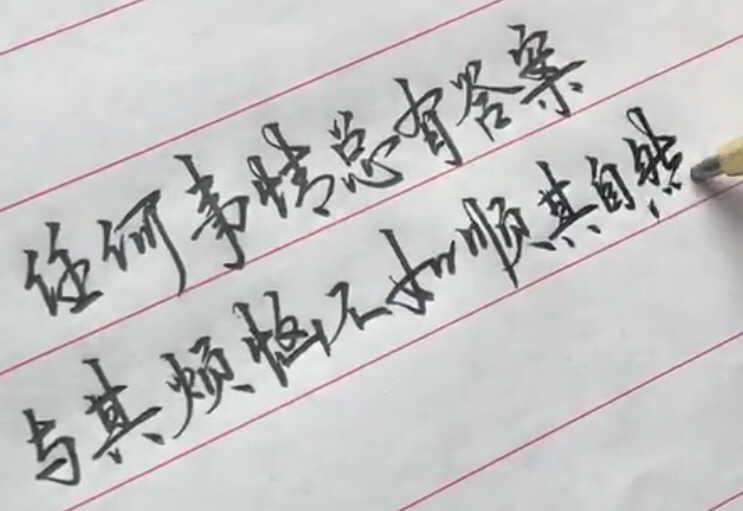 任何事情总有答案
与其烦恼不如顺其自然